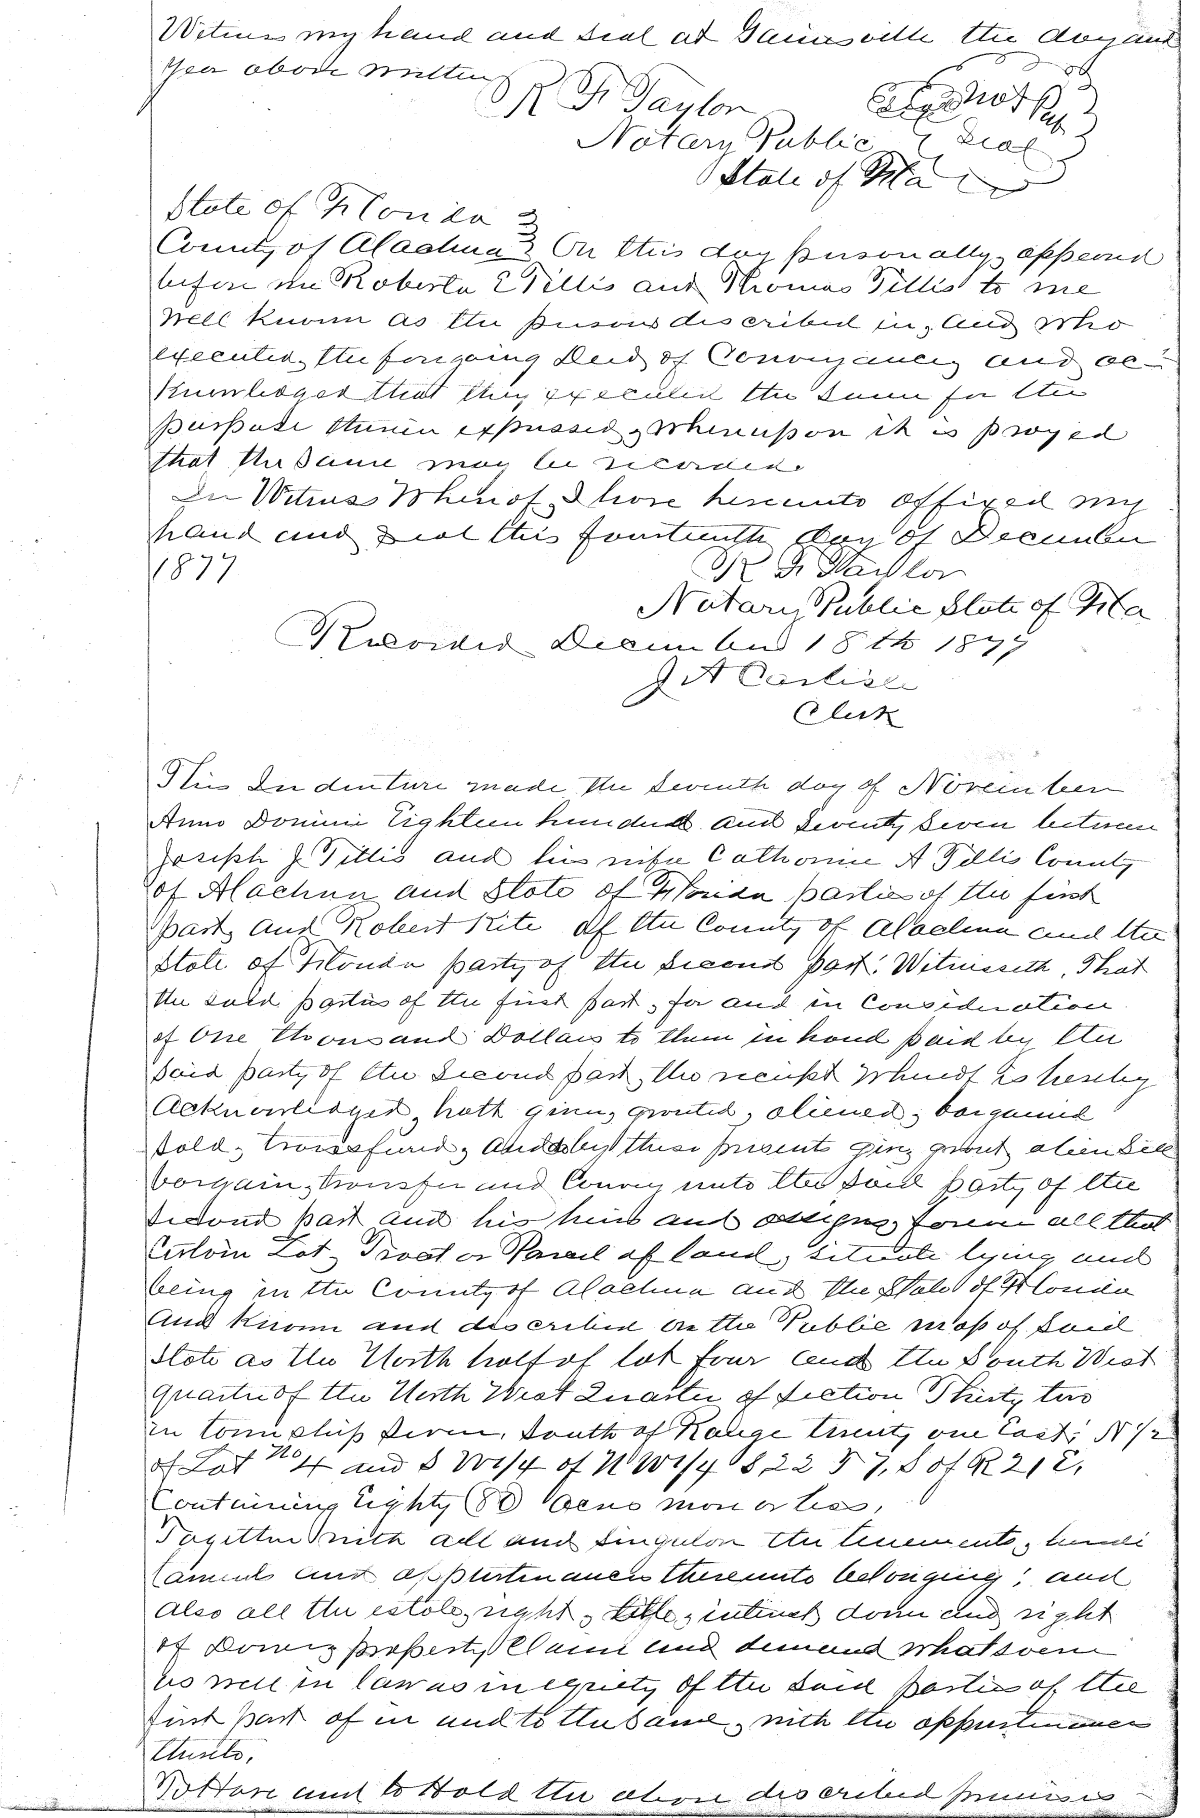 Witness my hand and seal at Gainesville the day and
year above written
R F Taylor Not Pub
Notary Public Seal
State of Fla
State of Florida
County of Alachua On this day personally, appeared
before me Roberta E Tillis and Thomas Tillis to me
well known as the persons described in, and who
executed, the foregoing Deed of Conveyance, and ac-
knowledged that they executed the same for the
purpose therein expressed, whereupon it is prayed
that the same may be recorded.
In Witness Whereof, I have hereunto affixed my
hand and seal this fourteenth day of December
1877 R F Taylor
Notary Public State of Fla
Recorded December 18th 1877
J A Carlisle
Clerk
This Indenture made the Seventh day of November
Anno Domini Eighteen hundred and Seventy Seven between
Joseph J Tillis and his wife Catharine A Tillis County
of Alachua and State of Florida parties of the first
part, and Robert Kite of the County of Alachua and the
State of Florida party of the Second part: Witnesseth, That
the said parties of the first part, for and in Consideration
of One thousand Dollars to them in hand paid by the
Said party of the Second part, the receipt whereof is hereby
Acknowledged, hath given, granted, aliened, bargained
Sold, transfered, and by these presents give, grant, alien Sell
bargain, transfer and Convey unto the Said party of the
Second part and his heirs and assigns, forever all that
Certain Lot, Tract or Parcel of land, situate lying and
being in the County of Alachua and the State of Florida
And Known and described on the Public map of Said
State as the North half of lot four and the South West
quarter of the North West Quarter of Section Thirty two
in township Seven, South of Range twenty one East; N 1/2
of Lot No 4 and S W 1/4 of N W 1/4 S 22 T 7, S of R 21 E,
Containing Eighty (80) Acres more or less,
Together with all and singular the tenements, heredi
taments and appurtenances thereunto belonging; and
also all the estate, right, title, interest, dower and right
of Dower, property, Claim and demand whatsoever
as well in law as in equity of the Said parties of the
first part of in and to the Same, with the appurtenances
thereto,
To Have and to Hold the above described premises